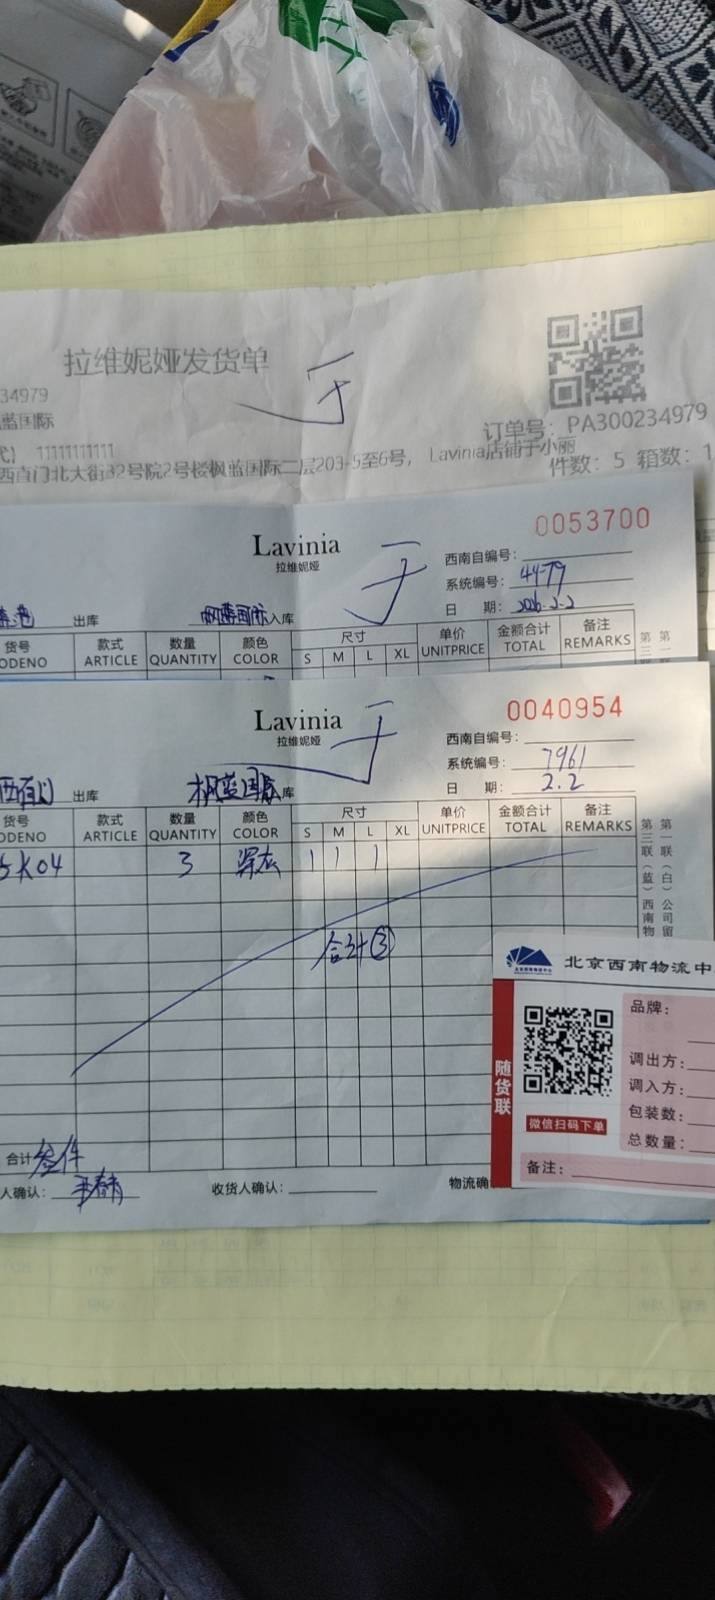 拉维妮娅发货单
于
34979
蓝国际
订单号: PA300234979
代) 11111111111
西直门北大街32号院2号楼枫蓝国际二层203-5至6号, Lavinia店铺于小丽
件数: 5 箱数: 1
0053700
Lavinia
拉维妮娅
于
西南自编号:
系统编号: 4479
日 期: 2026.2.2
出库
枫蓝国际入库
货号 款式 数量 颜色 尺寸 单价 金额合计 备注
ODENO ARTICLE QUANTITY COLOR S M L XL UNITPRICE TOTAL REMARKS
第三 第一
0040954
Lavinia
拉维妮娅
于
西南自编号:
系统编号: 7961
日 期: 2.2
出库
枫蓝国际库
货号 款式 数量 颜色 尺寸 单价 金额合计 备注
ODENO ARTICLE QUANTITY COLOR S M L XL UNITPRICE TOTAL REMARKS
5K04 3 深灰 1 1 1
合计③
第一联(白)公司留
第三联(蓝)西南物
北京西南物流中
随货联
微信扫码下单
品牌:
调出方:
调入方:
包装数:
总数量:
备注:
合计 叁件
人确认:
收货人确认:
物流确